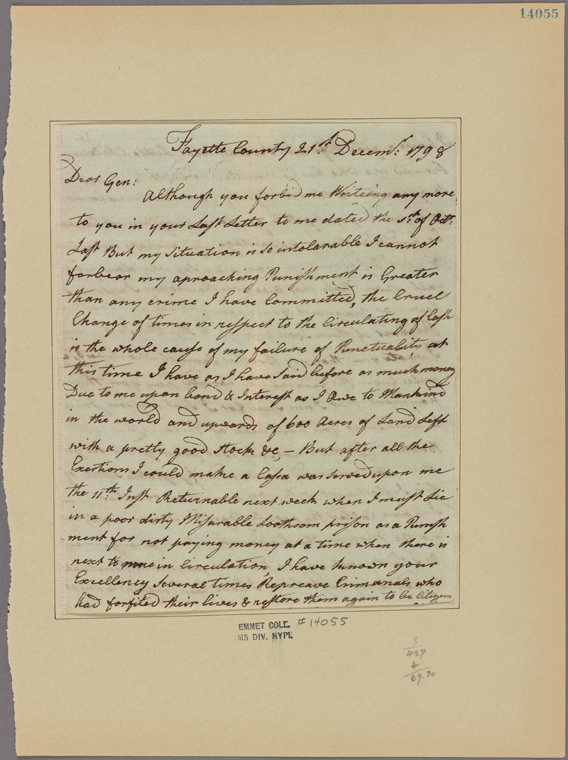 14055
Fayette County 21st Decemr: 1798
Dear Gen:
Although you forbid me Writeing any more
to you in your Last Letter to me dated the 5th of Octr.
Last But my Situation is so intolarable I cannot
forbear my aproaching Punishment is Greater
than any crime I have Committed, the Cruel
Change of times in respect to the Circulating of Cash
is the whole cause of my failure of Punctuality at
this time I have as I have Said before as much money
Due to me upon bond & Interest as I Owe to Mankind
in the world and upwards of 600 Acres of Land Left
with a pretty good Stock &c — But after all the
Exertions I could make a Casa was served upon me
the 11th Inst Returnable next week when I must Lie
in a poor dirty Misarable Loothsom prison as a Punish
ment for not paying money at a time when there is
next to none in Circulation, I have known your
Excellency Several times Repreave Crimanals who
had forfited their lives & restore them again to be Citizens
EMMET COLL. # 14055
MS DIV. NYPL
3
427
4
69.70